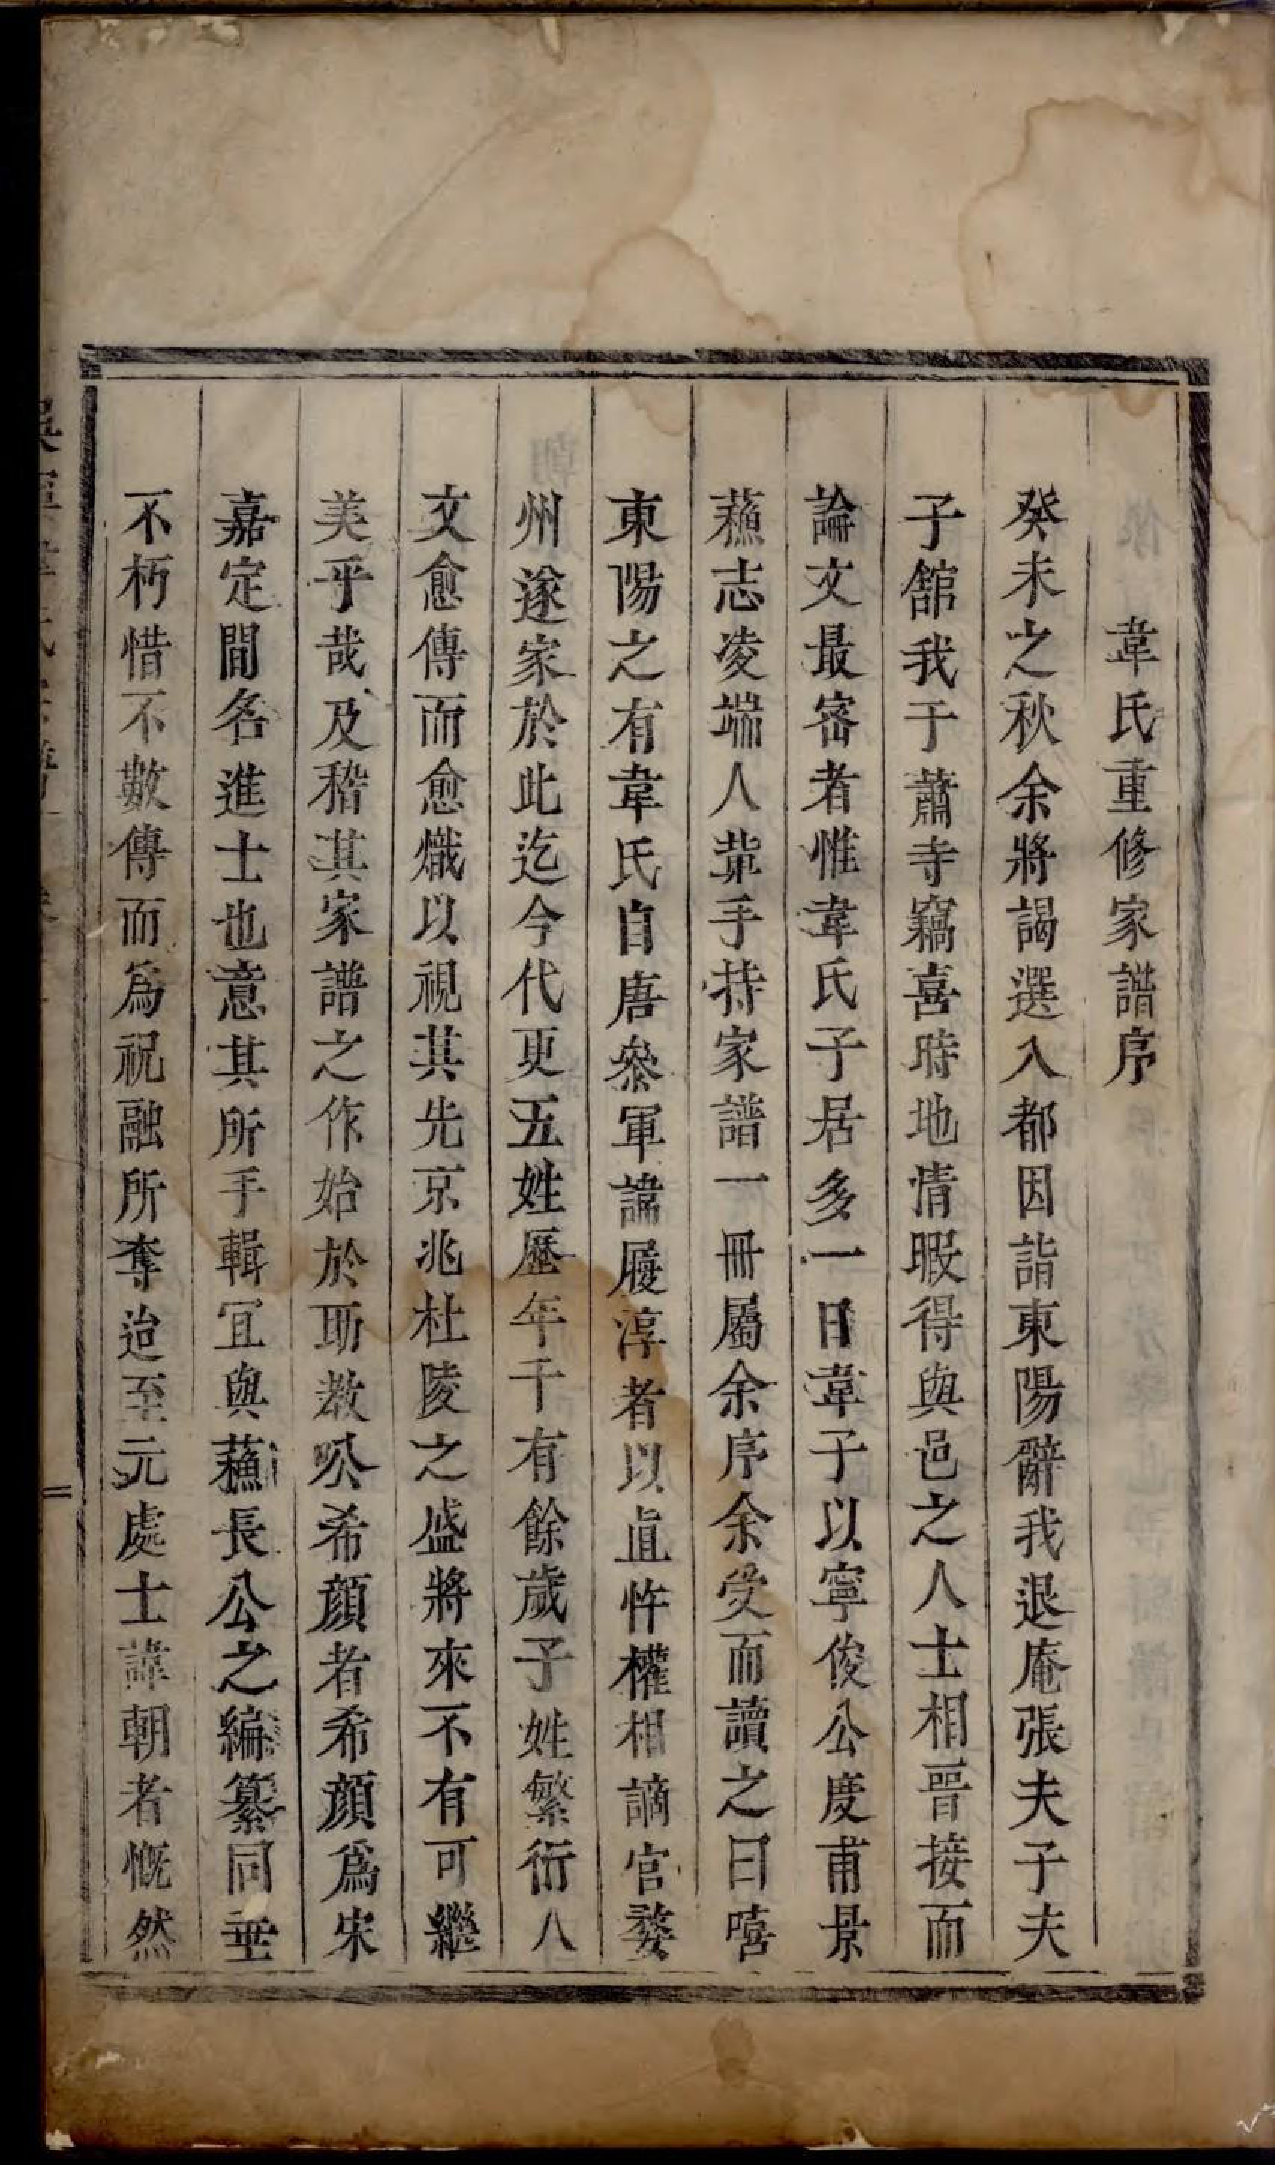 韋氏重修家譜序
癸未之秋余將謁選入都因詣東陽辭我退庵張夫子夫
子舘我于蕭寺竊喜時地情暇得與邑之人士相晋接而
論文最宻者惟韋氏子居多一日韋子以寧俊公度甫景
蘓志凌端人軰手持家譜一冊屬余序余受而讀之曰嘻
東陽之有韋氏自唐叅軍諱履淳者以直忤權相謫官婺
州遂家於此迄今代更五姓歷年千有餘歲子姓繁衍人
文愈傳而愈熾以視其先京兆杜陵之盛將來不有可繼
美乎哉及稽其家譜之作始於助教公希顔者希顔爲宋
嘉定間名進士也意其所手輯宜與蘓長公之編纂同垂
不朽惜不數傳而爲祝融所奪迨至元處士諱朝者慨然